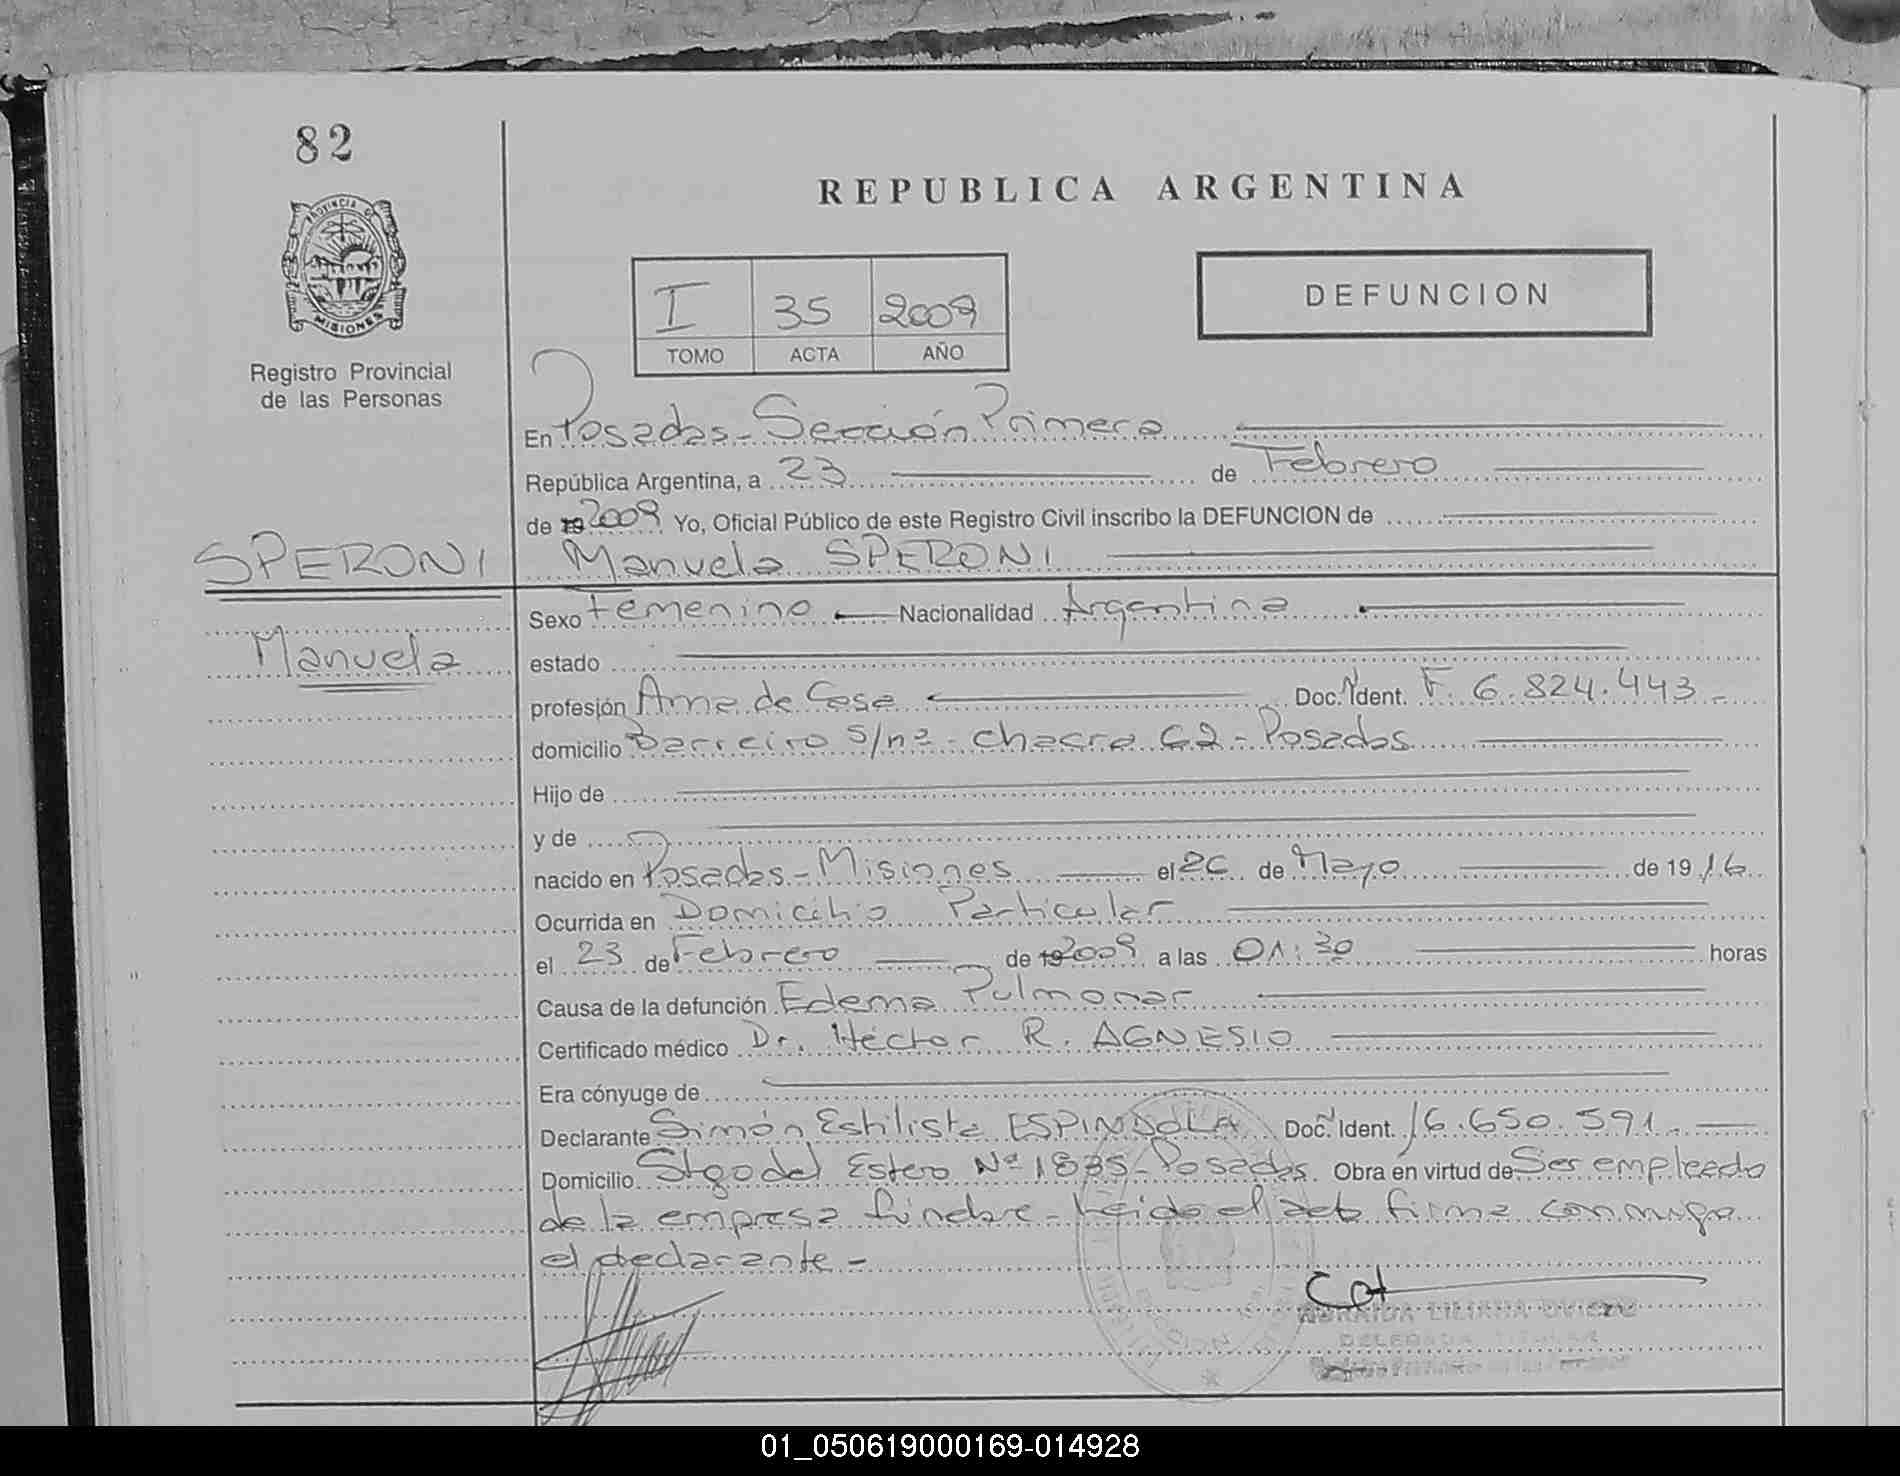 82
REPUBLICA ARGENTINA
PROVINCIA DE
MISIONES
I 35 2009
TOMO ACTA AÑO
DEFUNCION
Registro Provincial
de las Personas
En Posadas - Sección Primera
República Argentina, a 23 de Febrero
de 19 2009 Yo, Oficial Público de este Registro Civil inscribo la DEFUNCION de
SPERONI Manuela SPERONI
Sexo Femenino Nacionalidad Argentina
Manuela estado
profesión Ama de Casa Doc. N Ident. F. 6.824.443 -
domicilio Barreiro S/nº - chacra 62 - Posadas
Hijo de
y de
nacido en Posadas - Misiones el 26 de Mayo de 19 16
Ocurrida en Domicilio Particular
el 23 de Febrero de 19 2009 a las 01:30 horas
Causa de la defunción Edema Pulmonar
Certificado médico Dr. Héctor R. AGNESIO
Era cónyuge de
Declarante Simón Estilista ESPINDOLA Doc. N Ident. 16.650.591 -
Domicilio Stgo del Estero Nº 1835 - Posadas. Obra en virtud de Ser empleado
de la empresa fúnebre - Leido el acta firma conmigo
el declarante -
LILIANA OVIEDO
DELEGADA TITULAR
01_050619000169-014928